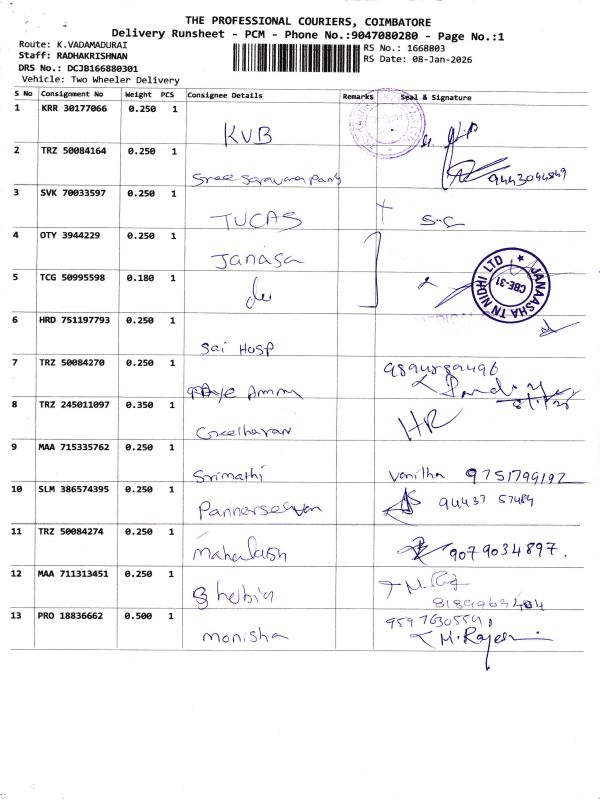 THE PROFESSIONAL COURIERS, COIMBATORE
Delivery Runsheet - PCM - Phone No.:9047080280 - Page No.:1
Route: K.VADAMADURAI
Staff: RADHAKRISHNAN
DRS No.: DCJB166880301
Vehicle: Two Wheeler Delivery
RS No.: 1668803
RS Date: 08-Jan-2026
S No Consignment No Weight PCS Consignee Details Remarks Seal & Signature
1 KRR 30177066 0.250 1 KVB
2 TRZ 50084164 0.250 1 9443044849
3 SVK 70033597 0.250 1 TUCAS S-C
4 OTY 3944229 0.250 1 Janasa
5 TCG 50995598 0.180 1 do
JANAASHA TN NIDHI LTD
CBE-31
6 HRD 751197793 0.250 1 Sai Hosp
7 TRZ 50084270 0.250 1 Ammu
8 TRZ 245011097 0.350 1 Greetharan HR
9 MAA 715335762 0.250 1 Srimathi Vanitha 9751799192
10 SLM 386574395 0.250 1 Pannerselvan 94437 57484
11 TRZ 50084274 0.250 1 9079034897.
12 MAA 711313451 0.250 1
13 PRO 18836662 0.500 1 monisha M.Rajesh